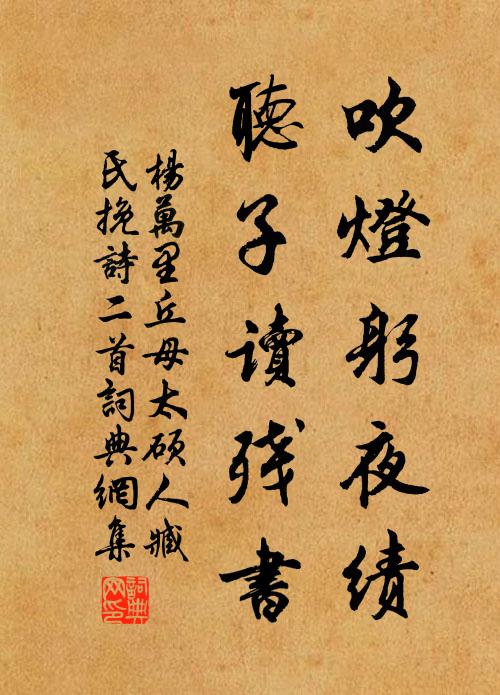 吹燈躬夜績
聽子讀殘書
楊萬里丘母太碩人臧
氏挽詩二首詞典網集
詞典網印